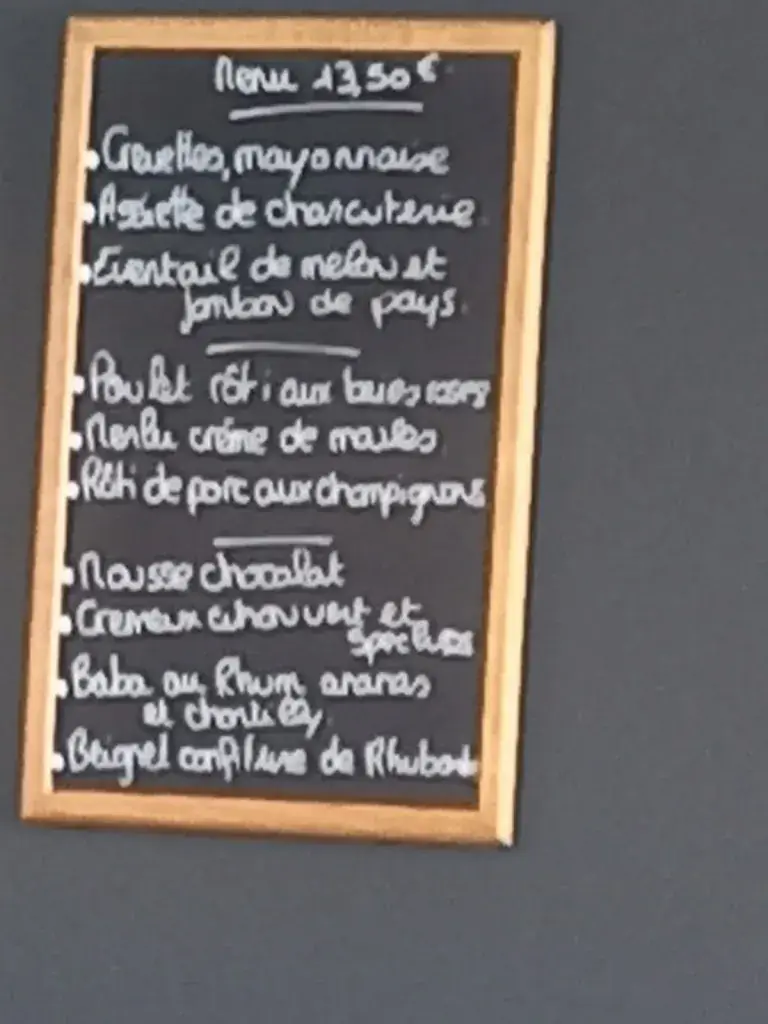 Menu 13,50 €
Crevettes, mayonnaise
Assiette de charcuterie
Eventail de melon et
jambon de pays.
Poulet rôti aux baies roses
Merlu crème de moules
Rôti de porc aux champignons
Mousse chocolat
Cremeux citron vert et
speculoos
Baba au Rhum ananas
et chantilly
Beignet confiture de Rhubarbe